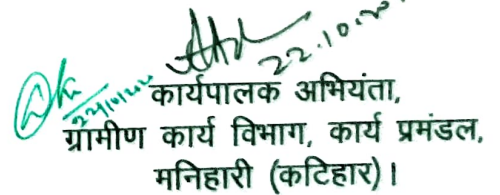 22.10.20
कार्यपालक अभियंता,
ग्रामीण कार्य विभाग, कार्य प्रमंडल,
मनिहारी (कटिहार)।